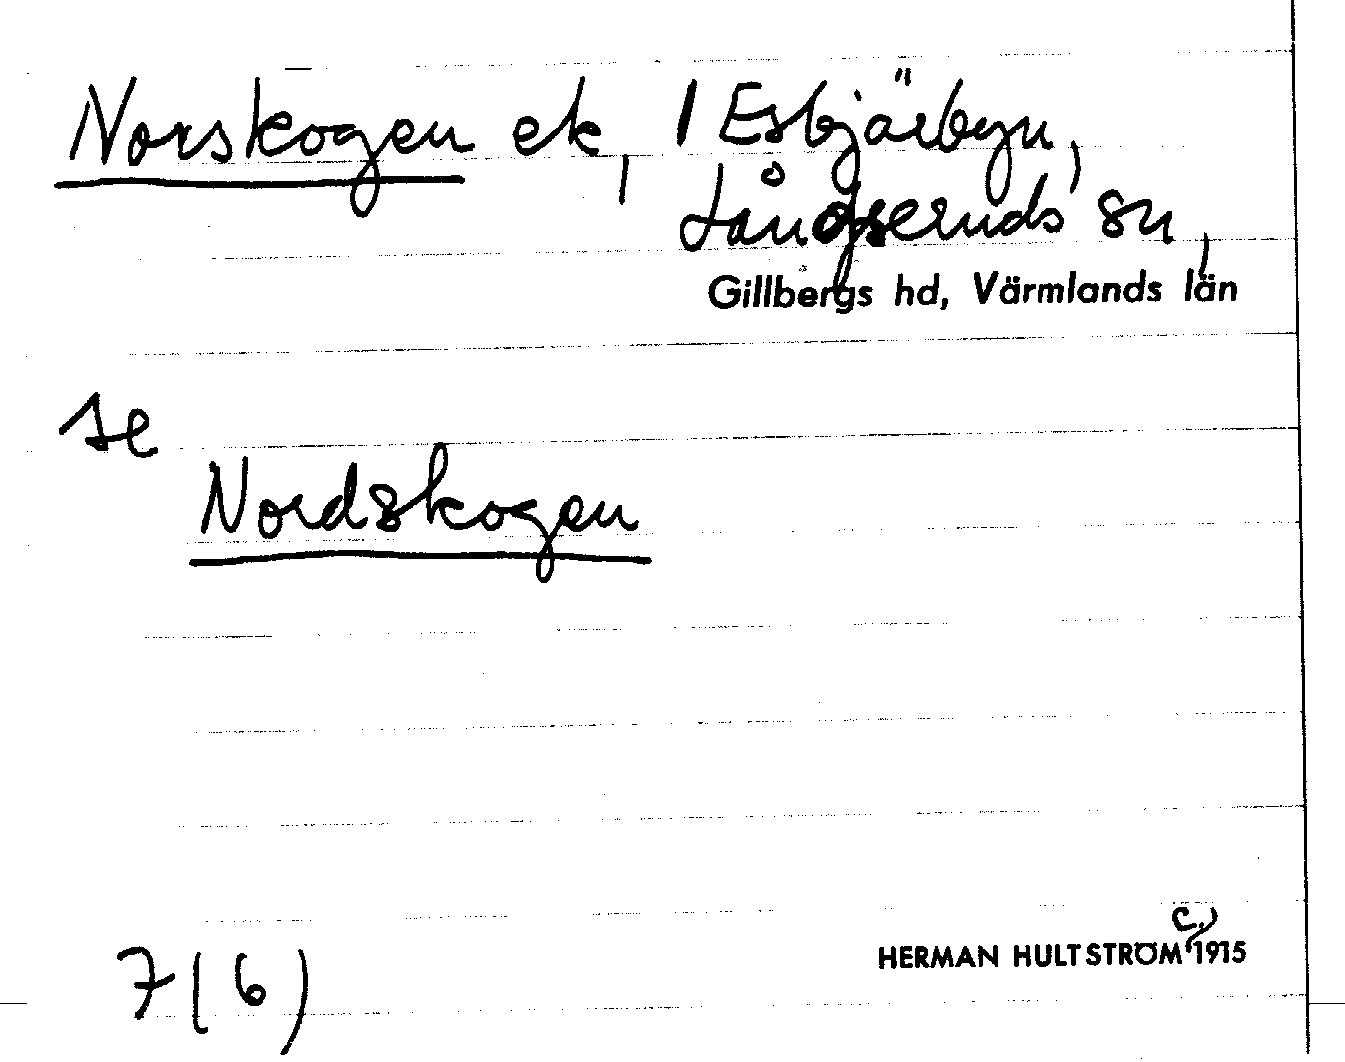 Norskogen ek, 1 Esbjärbyn,
Långseruds sn,
Gillbergs hd, Värmlands län
se
Nordskogen
HERMAN HULTSTRÖM c.) 1915
7(6)